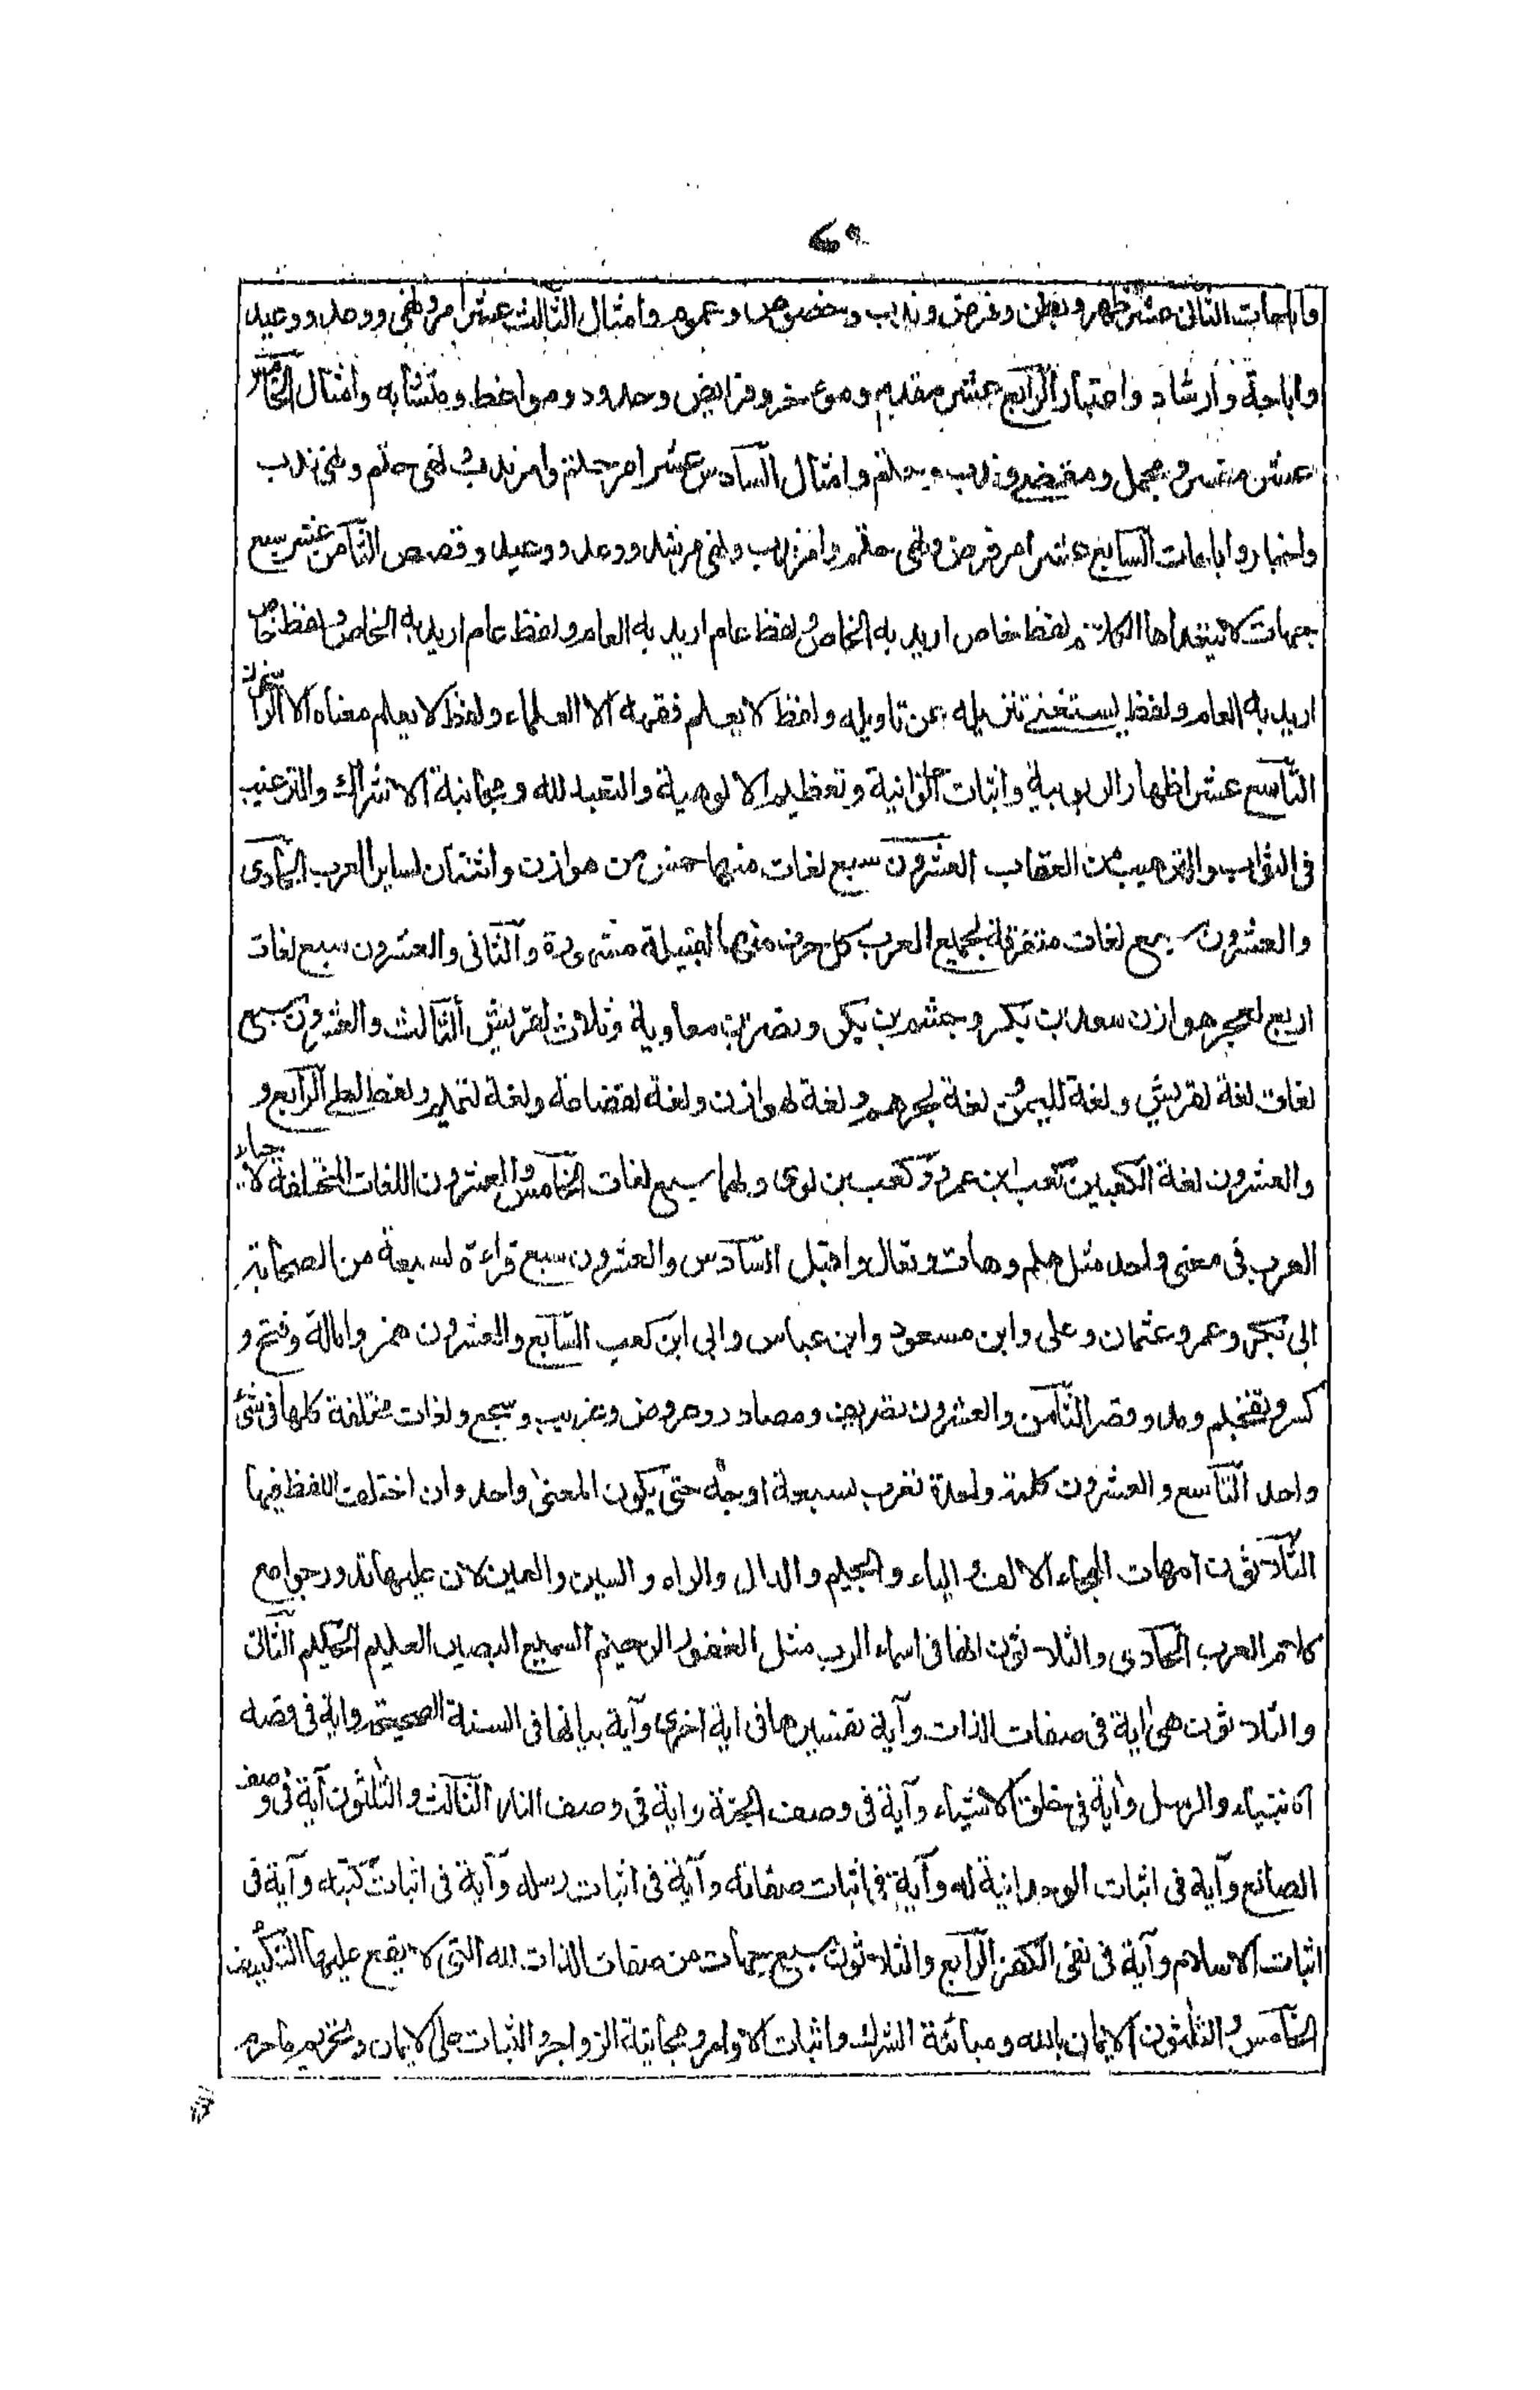 ٤٩
واباحات الثانى عشر ظهر وبطن وفرض وندب وخصوص وعموم وامثال الثالث عشر امر ونهى ووعد ووعيد
واباحة وارشاد واعتبار الرابع عشر مقدم ومؤخر وفرايض وحدود ومواعظ ومتشابه وامثال الخامس
عشر مفسر ومجمل ومقضى وندب وحتم وامثال السادس عشر امر حتم وامر ندب ونهى حتم ونهى ندب
واخبار واباحات السابع عشر امر فرض ونهى حتم وامر ندب ونهى مرشد ووعد ووعيد وقصص الثامن عشر سبع
جهات لا يتعداها الكلام لفظ خاص اريد به الخاص ولفظ عام اريد به العام ولفظ عام اريد به الخاص ولفظ خاص
اريد به العام ولفظ يستغنى تنزيله عن تاويله ولفظ لا يعلم فقهه الا العلماء ولفظ لا يعلم معناه الا الراسخون
التاسع عشر اظهار الربوبية واثبات الوحدانية وتعظيم الالوهية والتعبد لله ومجانبة الاشراك والترغيب
فى الثواب والترهيب من العقاب العشرون سبع لغات منها خمس من هوازن واثنتان لساير العرب الحادى
والعشرون سبع لغات متفرقة لجميع العرب كل حرف منها لقبيلة مشهورة والثانى والعشرون سبع لغات
اربع لعجز هوازن سعد بن بكر وجشم بن بكر ونصر بن معاوية وثلاث لقريش الثالث والعشرون سبع
لغات لغة لقريش ولغة لليمن ولغة لجرهم ولغة لهوازن ولغة لقضاعة ولغة لتميم ولغة لطى الرابع و
والعشرون لغة الكعبين كعب ابن عمرو وكعب بن لوى ولهما سبع لغات الخامس والعشرون اللغات المختلفة لاحياء
العرب فى معنى واحد مثل هلم وهات وتعال واقبل السادس والعشرون سبع قراءة لسبعة من الصحابة
ابى بكر وعمر وعثمان وعلى وابن مسعود وابن عباس وابى ابن كعب السابع والعشرون همز وامالة وفتح و
كسر وتفخيم ومد وقصر الثامن والعشرون تصريف ومصادر وعروض وغريب وسجع ولغات مختلفة كلها فى شئ
واحد التاسع والعشرون كلمة واحدة تعرب بسبعة اوجه حتى يكون المعنى واحد وان اختلف اللفظ فيها
الثلاثون امهات الهجاء الالف والباء والجيم والدال والراء والسين والعين لان عليها تدور جوامع
كلام العرب الحادى والثلاثون انها فى اسماء الرب مثل الغفور الرحيم السميع البصير العليم الحكيم الثانى
والثلاثون هى اية فى صفات الذات وآية تفسيرها فى اية اخرى وآية بيانها فى السنة الصحيحة واية فى قصه
الانبياء والرسل وآية فى خلق الاشياء وآية فى وصف الجنة واية فى وصف النار الثالث والثلثون آية فى وصف
الصانع وآية فى اثبات الوحدانية له وآية فى اثبات صفاته وآية فى اثبات رسله وآية فى اثبات كتبه وآية فى
اثبات الاسلام وآية فى نفى الكفر الرابع والثلاثون سبع جهات من صفات الذات لله التى لا يقع عليها التكييف
الخامس والثلثون الايمان بالله ومباينة الشرك واثبات الاوامر ومجانبة الزواجر والثبات على الايمان وتحريم ما حرم